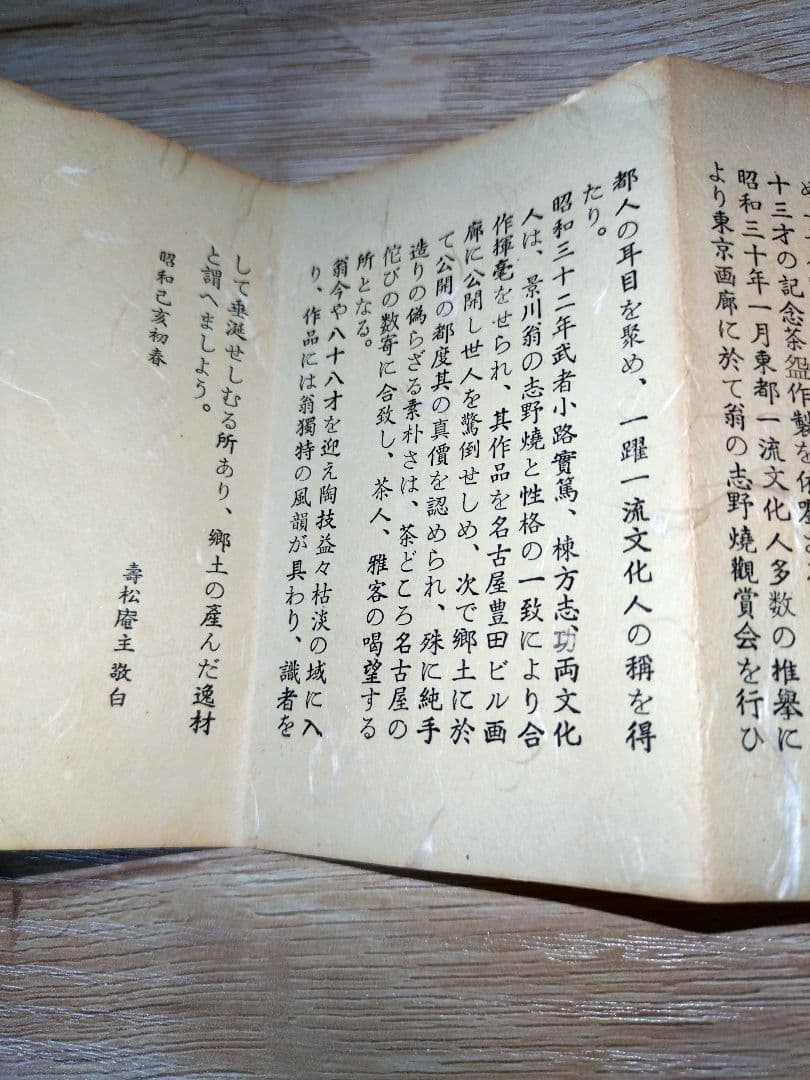 十三才の記念茶盌作製を依
昭和三十年一月東都一流文化人多数の推挙に
より東京画廊に於て翁の志野燒觀賞会を行ひ
都人の耳目を聚め、一躍一流文化人の稱を得
たり。
昭和三十二年武者小路實篤、棟方志功両文化
人は、景川翁の志野燒と性格の一致により合
作揮毫をせられ、其作品を名古屋豊田ビル画
廊に公開し世人を驚倒せしめ、次で郷土に於
て公開の都度其の真價を認められ、殊に純手
造りの偽らざる素朴さは、茶どころ名古屋の
侘びの数寄に合致し、茶人、雅客の喝望する
所となる。
翁今や八十八才を迎え陶技益々枯淡の域に入
り、作品には翁獨特の風韻が具わり、識者を
して垂涎せしむる所あり、郷土の産んだ逸材
と謂へましよう。
昭和己亥初春
壽松庵主敬白